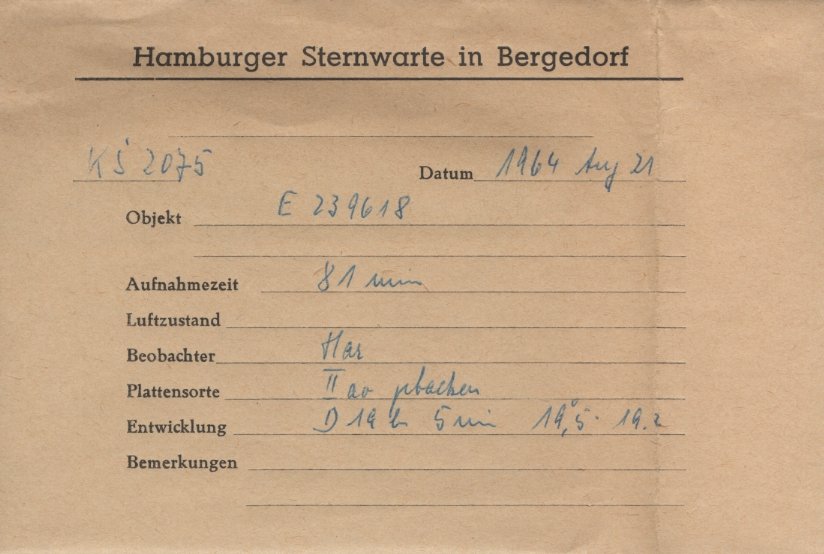 Hamburger Sternwarte in Bergedorf
KS 2075 Datum 1964 Aug 21
Objekt E 239618
Aufnahmezeit 81 min
Luftzustand
Beobachter Har
Plattensorte II ao gebacken
Entwicklung D 19 b 5 min 19,°5 - 19.2
Bemerkungen